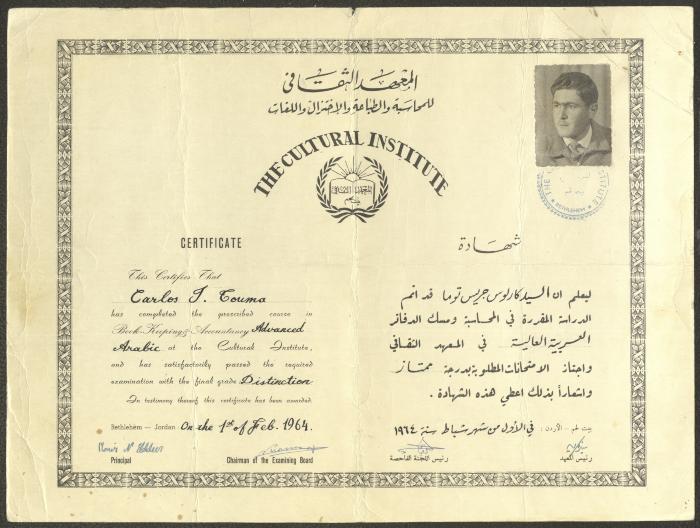 المعهد الثقافي
للمحاسبة والطباعة والاختزال واللغات
THE CULTURAL INSTITUTE
المعهد الثقافي
بيت لحم
BETHLEHEM
CERTIFICATE
This Certifies That
Carlos J. Touma
has completed the prescribed course in
Book-Keeping & Accountancy Advanced
Arabic at the Cultural Institute,
and has satisfactorily passed the required
examination with the final grade Distinction
In testimony thereof this certificate has been awarded.
Bethlehem — Jordan On the 1st of Feb. 1964.
Principal
Chairman of the Examining Board
شهادة
ليعلم ان السيد كارلوس جريس توما قد اتم
الدراسة المقررة في المحاسبة ومسك الدفاتر
العربية العالية في المعهد الثقافي
واجتاز الامتحانات المطلوبة بدرجة ممتاز
واشعاراً بذلك اعطي هذه الشهادة .
بيت لحم - الأردن : في الأول من شهر شباط سنة ١٩٦٤
رئيس اللجنة الفاحصة
رئيس المعهد